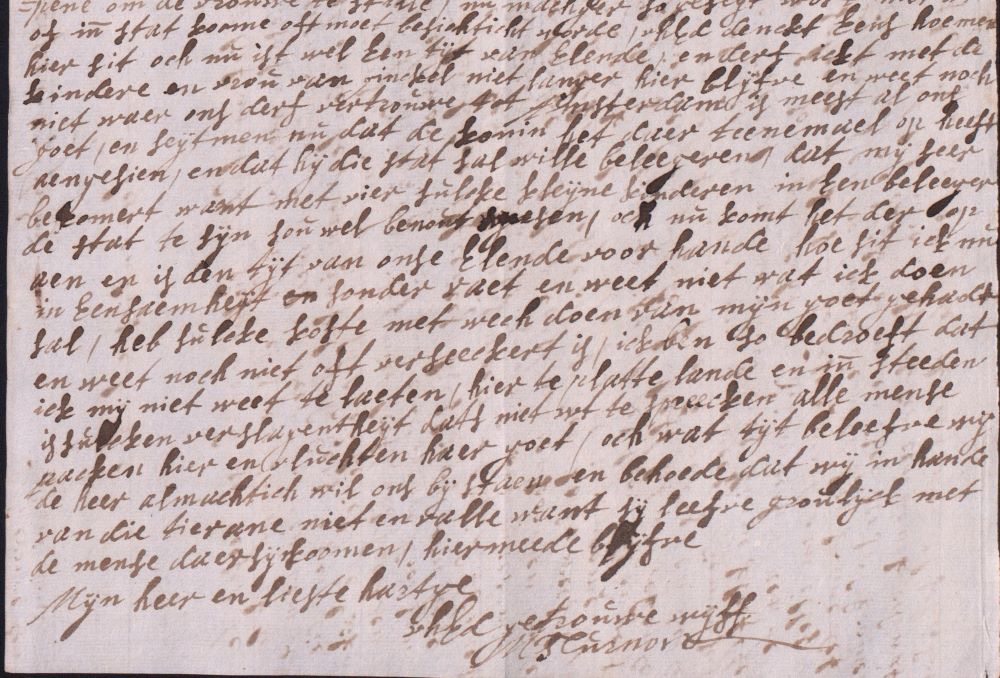 om de vrouwe te
oft in stat koome oft moet besichticht worde, uhEd denckt eens hoe men
hier sit och nu ist wel een tijt van Elende, en derf ickt met de
kindere en vrou van onckel niet langer hier blijfve en weet noch
niet waer ons derf vertrouwe tot Amsterdam is meest al ons
goet, en seijtmen nu dat de konin het daer teenemael op heeft
aengesien, en dat hij die stat sal wille beleegeren, dat mij seer
bekomert want met vier sulcke kleijne kinderen in een beleeger
de stat te sijn sou wel benout weesen, och nu komt het der op
aen en is den tijt van onse Elende voor hande hoe sit ick nu
in eensaemheijt en sonder raet en weet niet wat ick doen
sal, heb sulcke koste met wech doen van mijn goet gehadt
en weet noch niet oft verseeckert is, ick ben so bedroeft dat
ick mij niet weet te laeten, hier te platte lande en in steeden
is sulcken verslagentheijt dats niet wt te spreecken alle mense
packen hier en vluchten haer goet, och wat tijt beleefve wij
de heer almachtich wil ons bij staen en behoede dat wij in hande
van die tierane niet en valle want sij leefve grouwlijck met
de mense daer sij koomen, hiermeede blijfve
Mijn heer en liefste hartge
uhEd getrouwe wijff
M Turnor